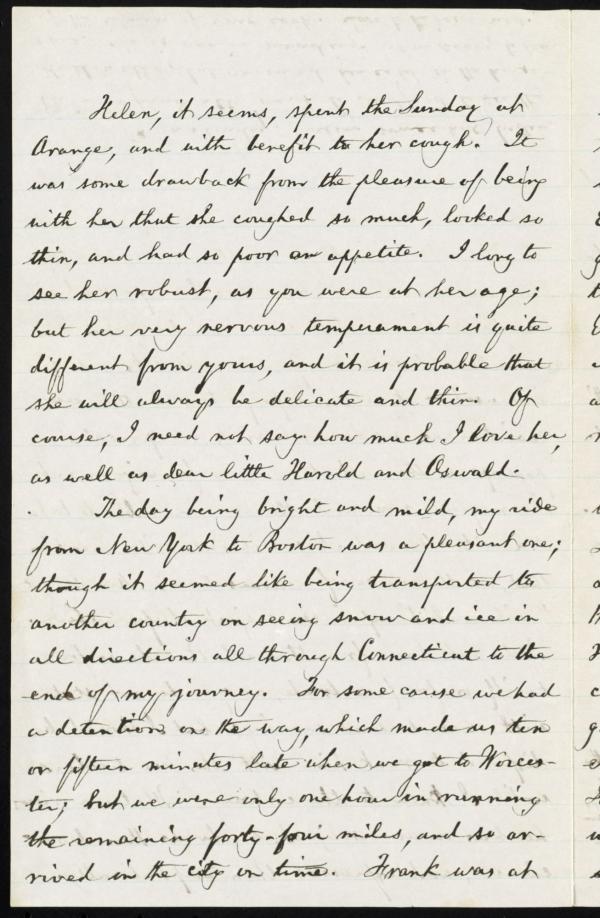 Helen, it seems, spent the Sunday at
Orange, and with benefit to her cough. It
was some drawback from the pleasure of being
with her that she coughed so much, looked so
thin, and had so poor an appetite. I long to
see her robust, as you were at her age;
but her very nervous temperament is quite
different from yours, and it is probable that
she will always be delicate and thin. Of
course, I need not say how much I love her,
as well as dear little Harold and Oswald.
The day being bright and mild, my ride
from New York to Boston was a pleasant one;
though it seemed like being transported to
another country on seeing snow and ice in
all directions all through Connecticut to the
end of my journey. For some cause we had
a detention on the way, which made us ten
or fifteen minutes late when we got to Worces-
ter; but we were only one hour in running
the remaining forty-four miles, and so ar-
rived in the city on time. Frank was at